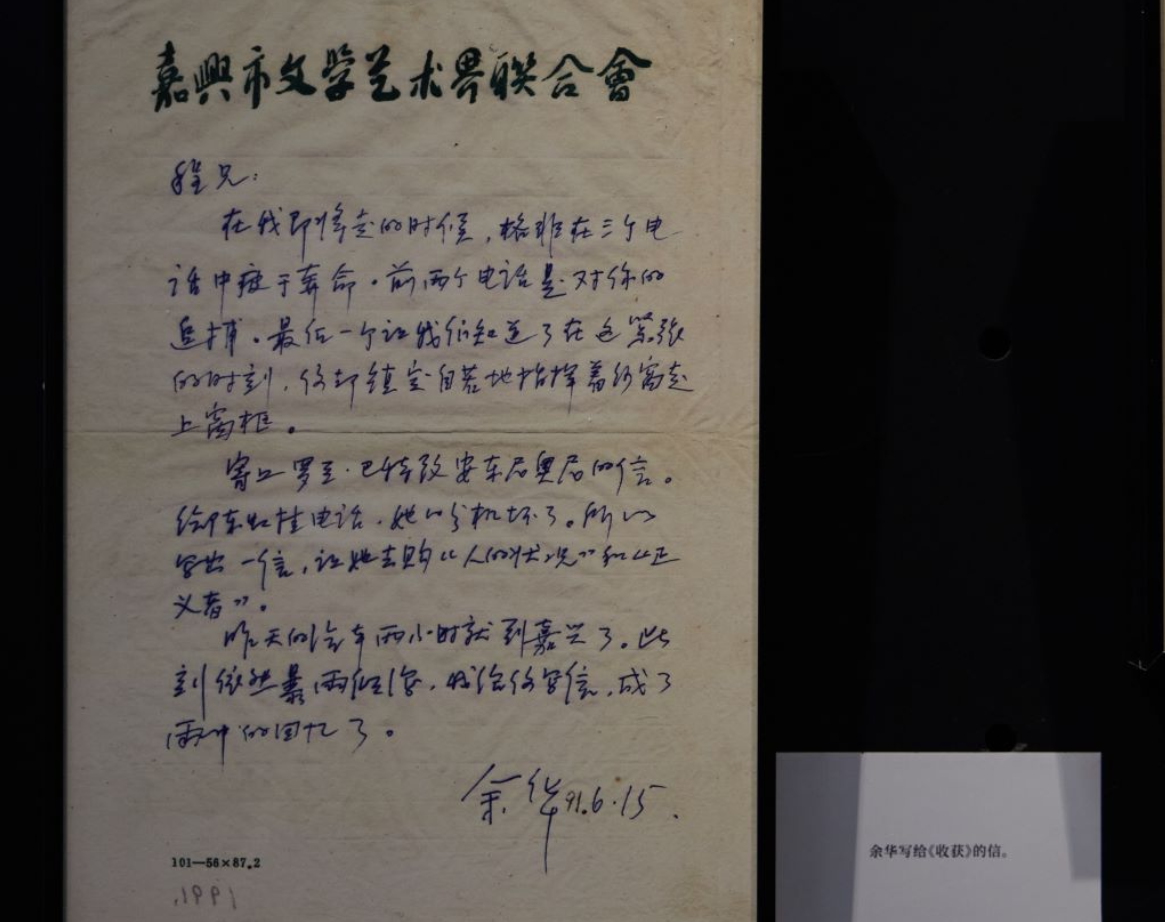 嘉興市文学艺术界聯合會
程兄:
在我即将走的时候,格非在三个电
话中疲于奔命。前两个电话是对你的
追捕。最后一个让我们知道了在这紧张
的时刻,你却镇定自若地指挥着纱窗走
上窗框。
寄上罗兰·巴特致安东尼奥尼的信。
给陈虹挂电话,她的分机坏了。所以
写出一信,让她去购“人的状况”和“正
义者”。
昨天的汽车两小时就到嘉兴了。此
刻依然暴雨倾泻,我给你写信,成了
雨中的回忆了。
余华 91.6.15.
101—56×87.2
1991.
余华写给《收获》的信。